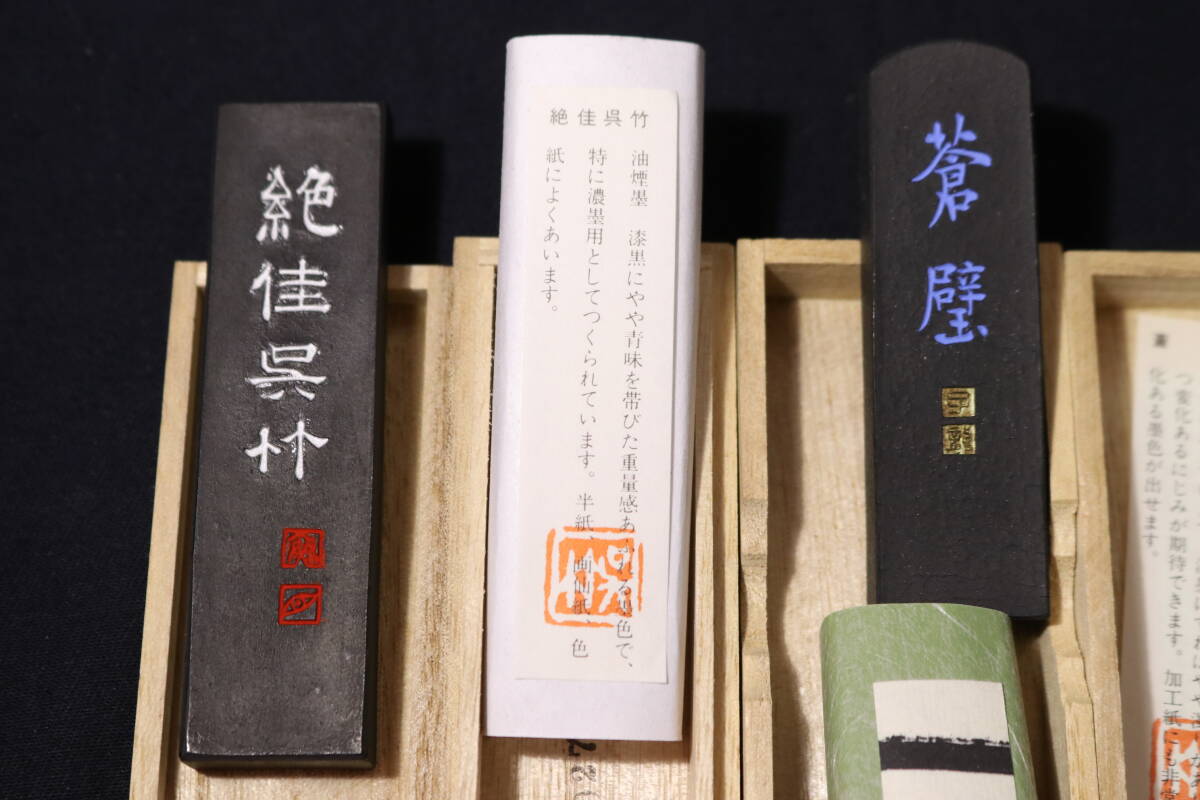 絶佳呉竹
絶佳呉竹
油煙墨　漆黒にやや青味を帯びた重量感あふれる墨色で、
特に濃墨用としてつくられています。半紙、画仙紙、色
紙によくあいます。
蒼璧
つ変化あるにじみが期待できます。加工紙にも非常
化ある墨色が出せます。